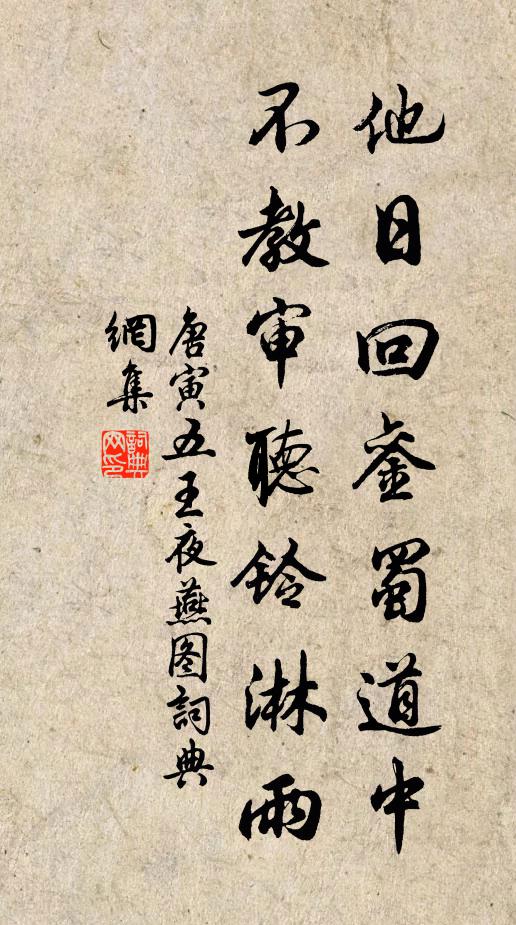 他日回銮蜀道中
不教审聽鈴淋雨
唐寅五王夜燕图詞典
網集
詞典
网印